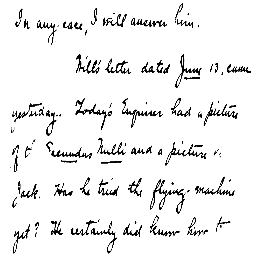 In any case, I will answer him.
Will's letter dated June 13, came
yesterday. Today's Enquirer had a picture
of t' Secundus Nulli and a picture o.
Jack. Has he tried the flying-machine
yet? He certainly did know how t